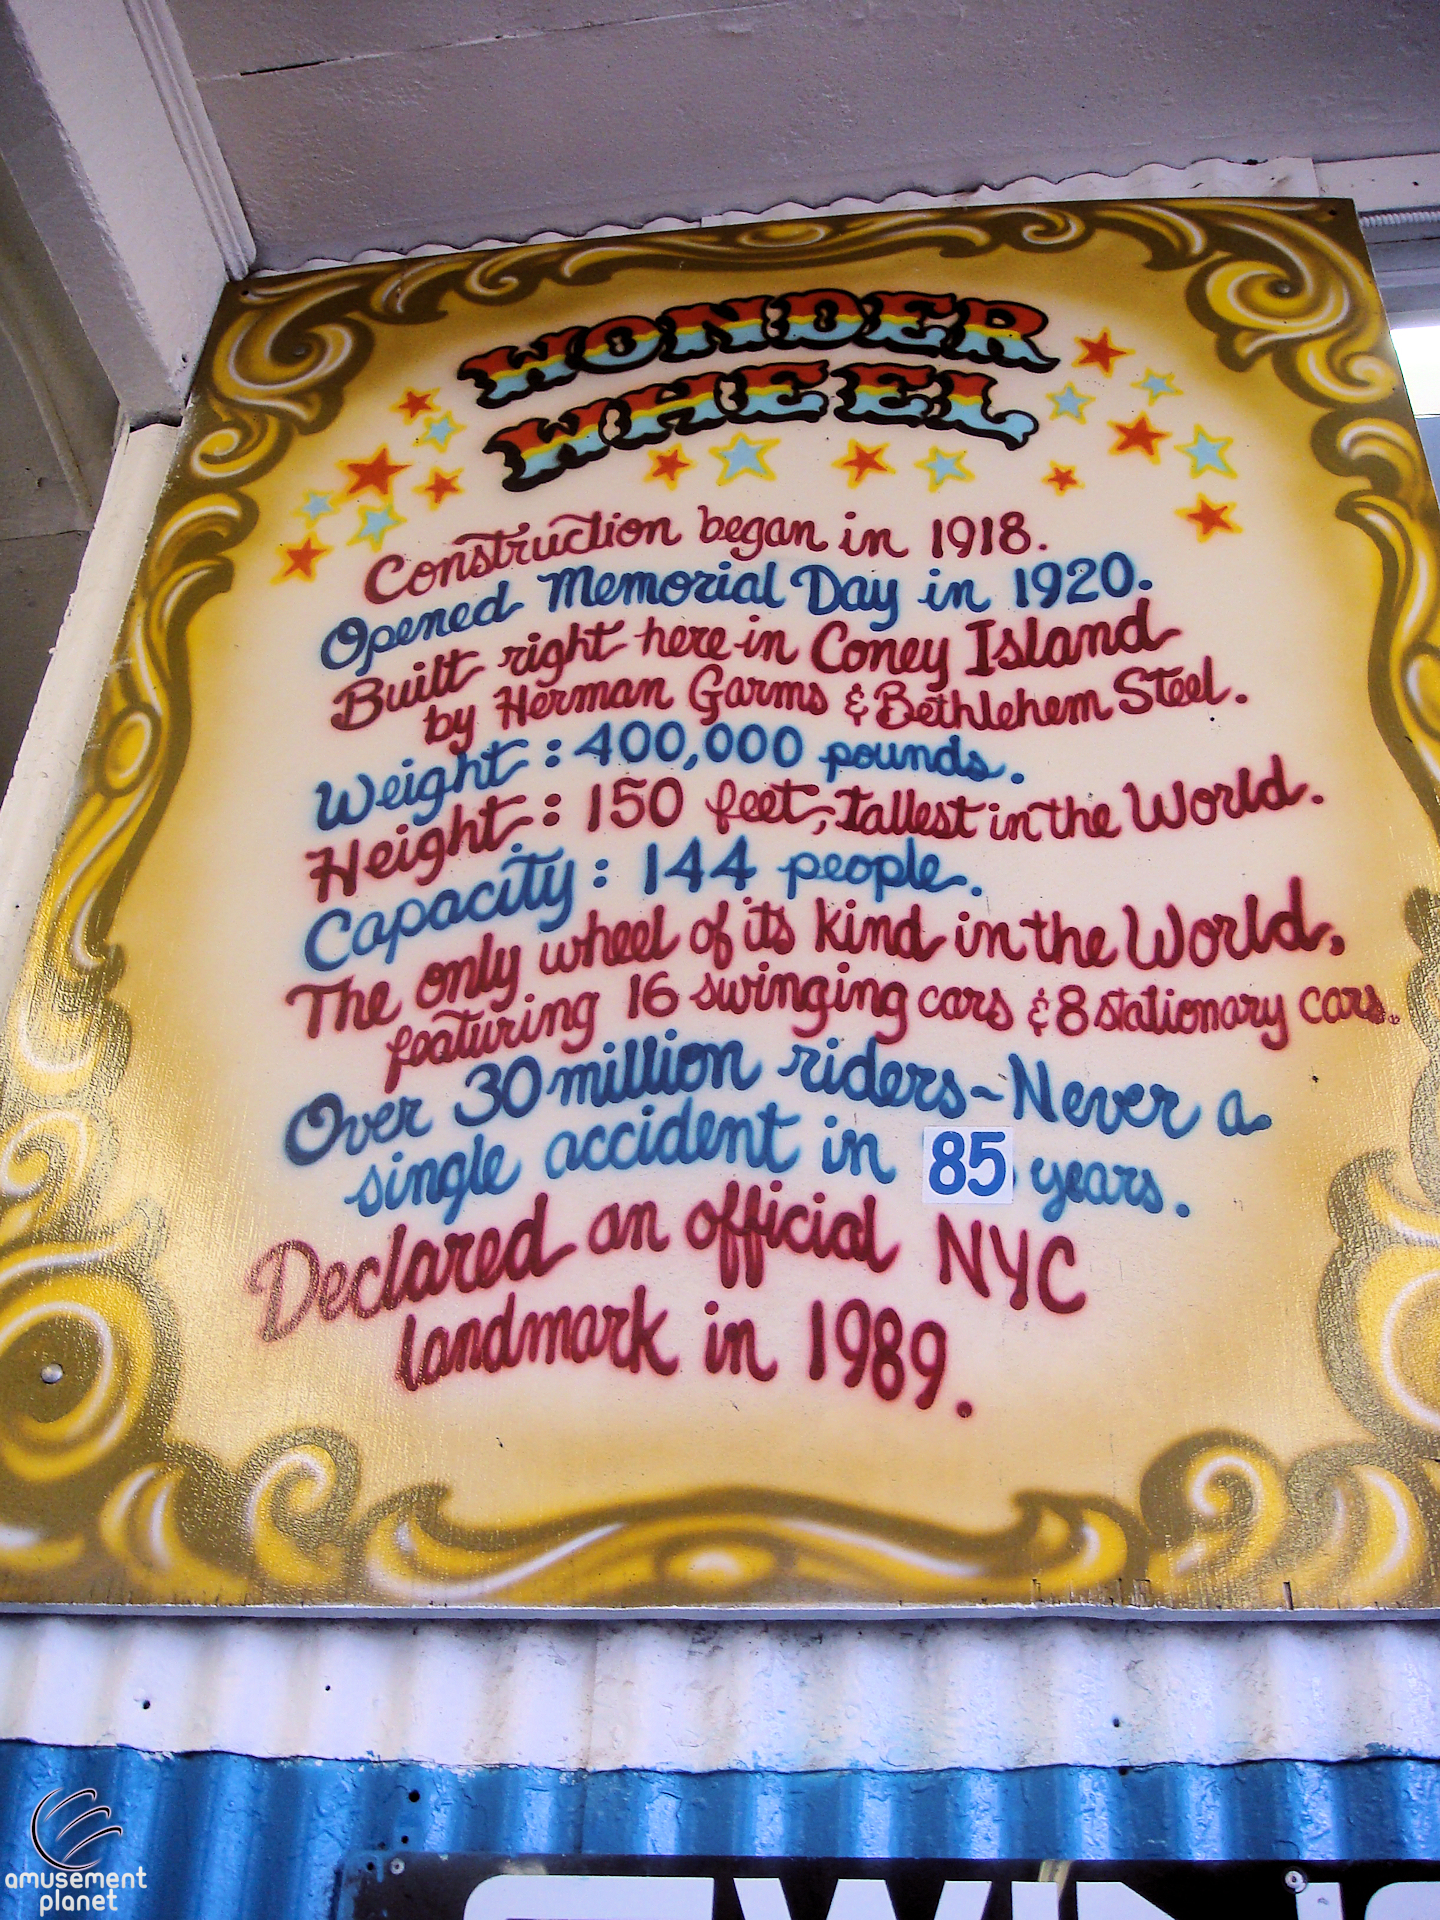 WONDER
WHEEL
Construction began in 1918.
Opened Memorial Day in 1920.
Built right here in Coney Island
by Herman Garms & Bethlehem Steel.
Weight: 400,000 pounds.
Height: 150 feet, tallest in the World.
Capacity: 144 people.
The only wheel of its kind in the World,
featuring 16 swinging cars & 8 stationary cars.
Over 30 million riders~Never a
single accident in 85 years.
Declared an official NYC
landmark in 1989.
amusement
planet